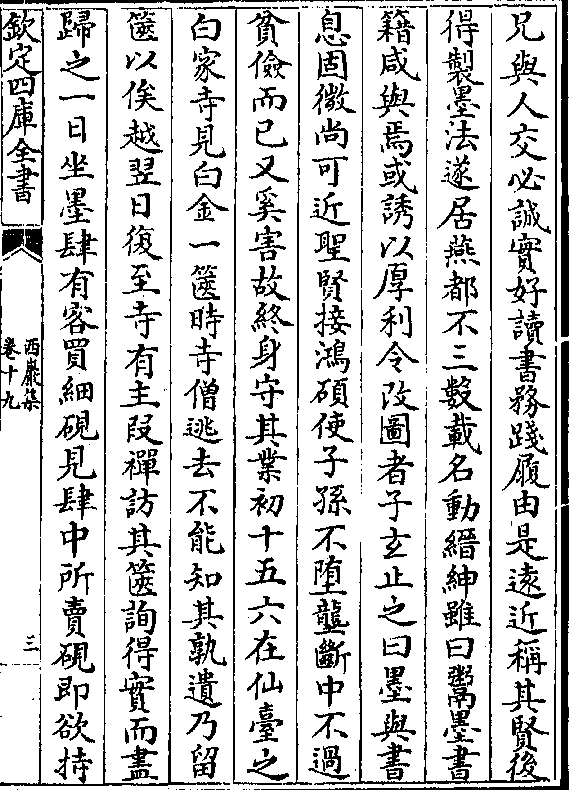 兄與人交必誠實好讀書務踐履由是遠近稱其賢後
得製墨法遂居燕都不三數載名動縉紳雖曰鬻墨書
籍咸與焉或誘以厚利令改圖者子玄止之曰墨與書
息固微尚可近聖賢接鴻碩使子孫不墮壟斷中不過
貧儉而已又奚害故終身守其業初十五六在仙臺之
白家寺見白金一篋時寺僧逃去不能知其孰遺乃留
篋以俟越翌日復至寺有主段禪訪其篋詢得實而盡
歸之一日坐墨肆有客買細硯見肆中所賣硯即欲持
欽定四庫全書
西巖集
卷十九
三